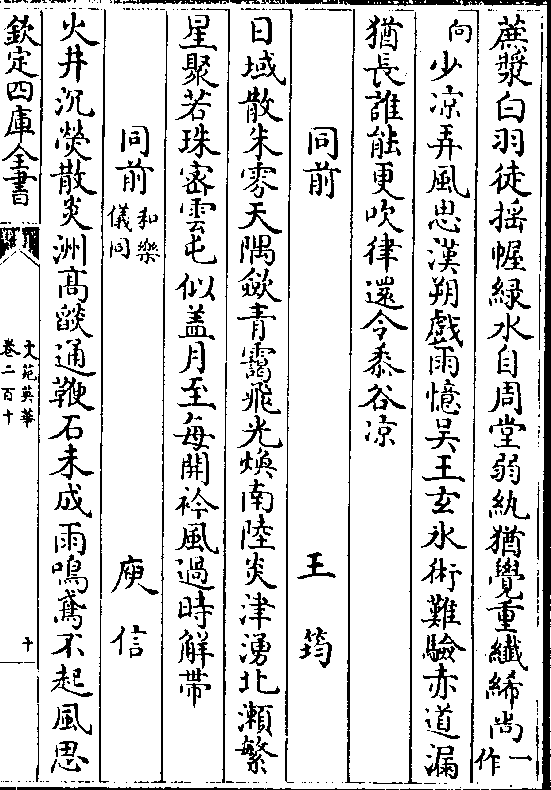 蔗漿白羽徒揺幄緑水自周堂弱紈猶覺重纎絺尚一作
向少凉弄風思漢朔戲雨憶吴王玄氷術難驗赤道漏
猶長誰能更吹律還令黍谷凉
同前 王筠
日域散朱雰天隅歛青靄飛光煥南陸炎津湧北瀨繁
星聚若珠宻雲屯似盖月至每開衿風過時解帶
同前和樂儀同 庾信
火井沉熒散炎洲髙燄通鞭石未成雨鳴鳶不起風思
欽定四庫全書
文苑英華
卷二百十
十